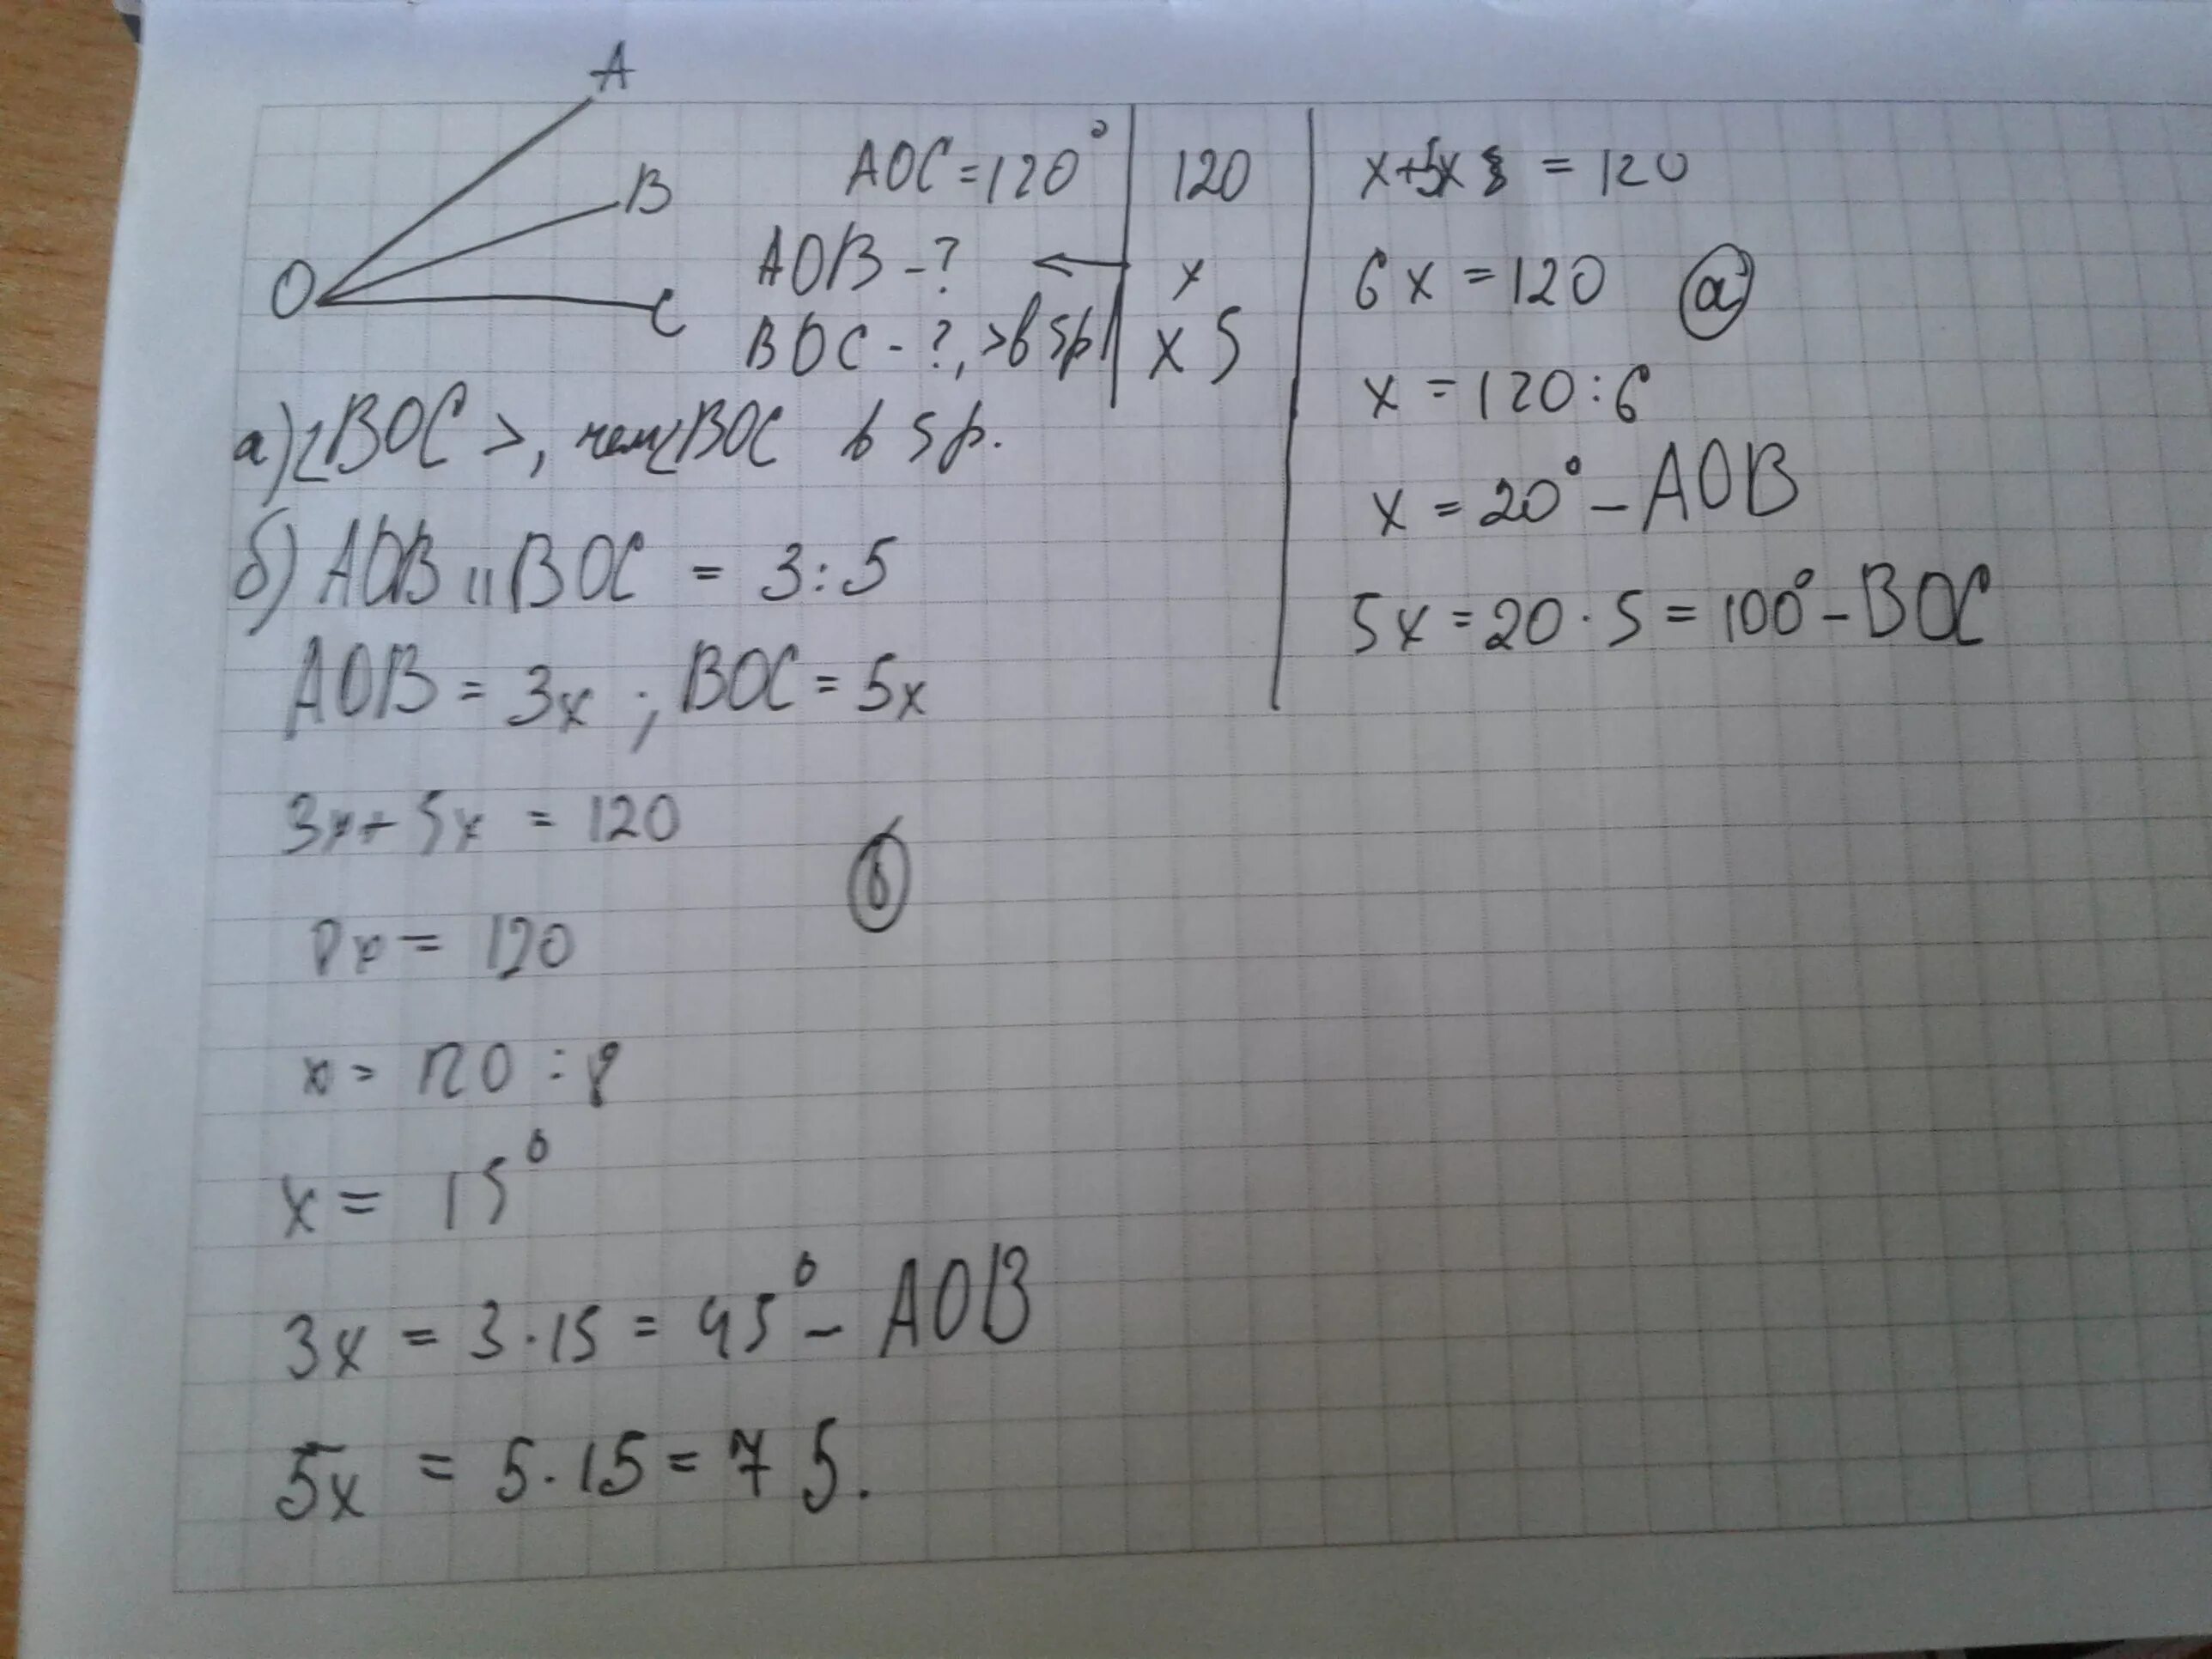 A
B
O
C
AOC = 120°
AOB - ?
BOC - ?, > в 5р
120
x
x 5
x+5x = 120
6x = 120 а
x = 120 : 6
x = 20° - AOB
5x = 20 · 5 = 100° - BOC
а) ∠BOC >, чем ∠BOC в 5 р.
б) AOB и BOC = 3 : 5
AOB = 3x ; BOC = 5x
3x + 5x = 120
б
8x = 120
x = 120 : 8
x = 15°
3x = 3 · 15 = 45° - AOB
5x = 5 · 15 = 75.